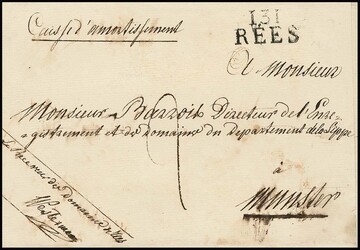 Caisse d'amortissement
131
REES
A Monsieur
Monsieur Bazzoit Directeur de l'Enre-
gistrement et de Domaine du departement de la Lippe
à
Munster
Le Receveur des Domaines de Rees